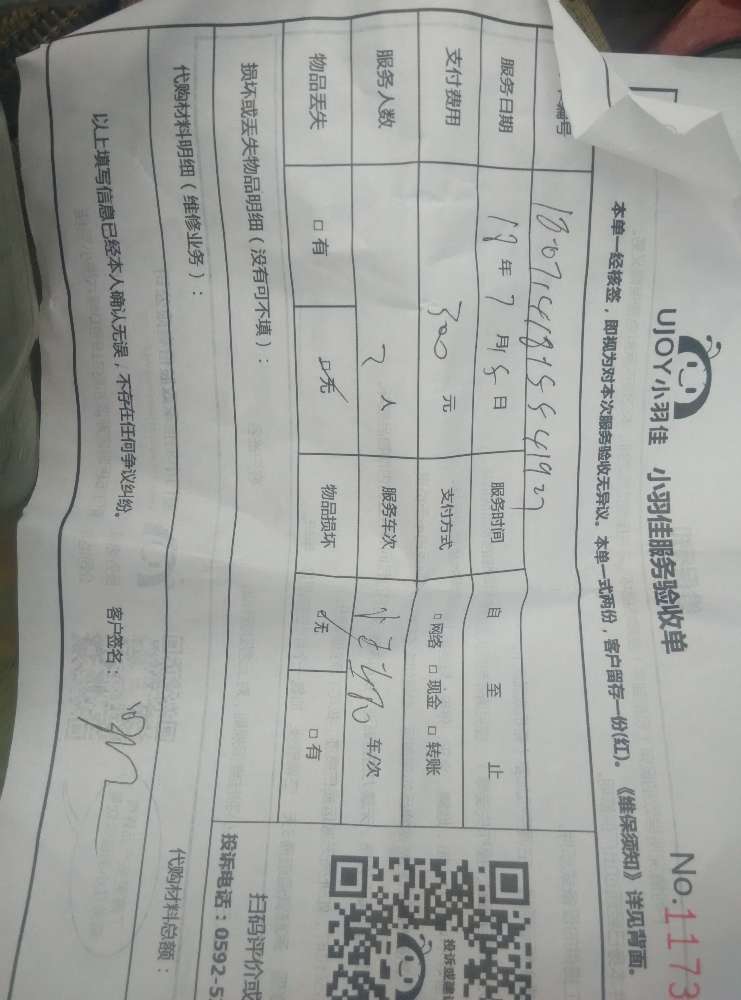 UJOY小羽佳 小羽佳服务验收单
No.1173
本单一经核签，即视为对本次服务验收无异议。本单一式两份，客户留存一份(红)。《维保须知》详见背面。
编号
服务日期 18年7月15日 服务时间 自 至 止
支付费用 300元 支付方式 □网络 □现金 □转账
服务人数 2人 服务车次 车/次
物品丢失 □有 □无 物品损坏 □无 □有
损坏或丢失物品明细（没有可不填）：
代购材料明细（维修业务）：
代购材料总额：
以上填写信息已经本人确认无误，不存在任何争议纠纷。 客户签名：
投诉或建议
扫码评价或
投诉电话：0592-5